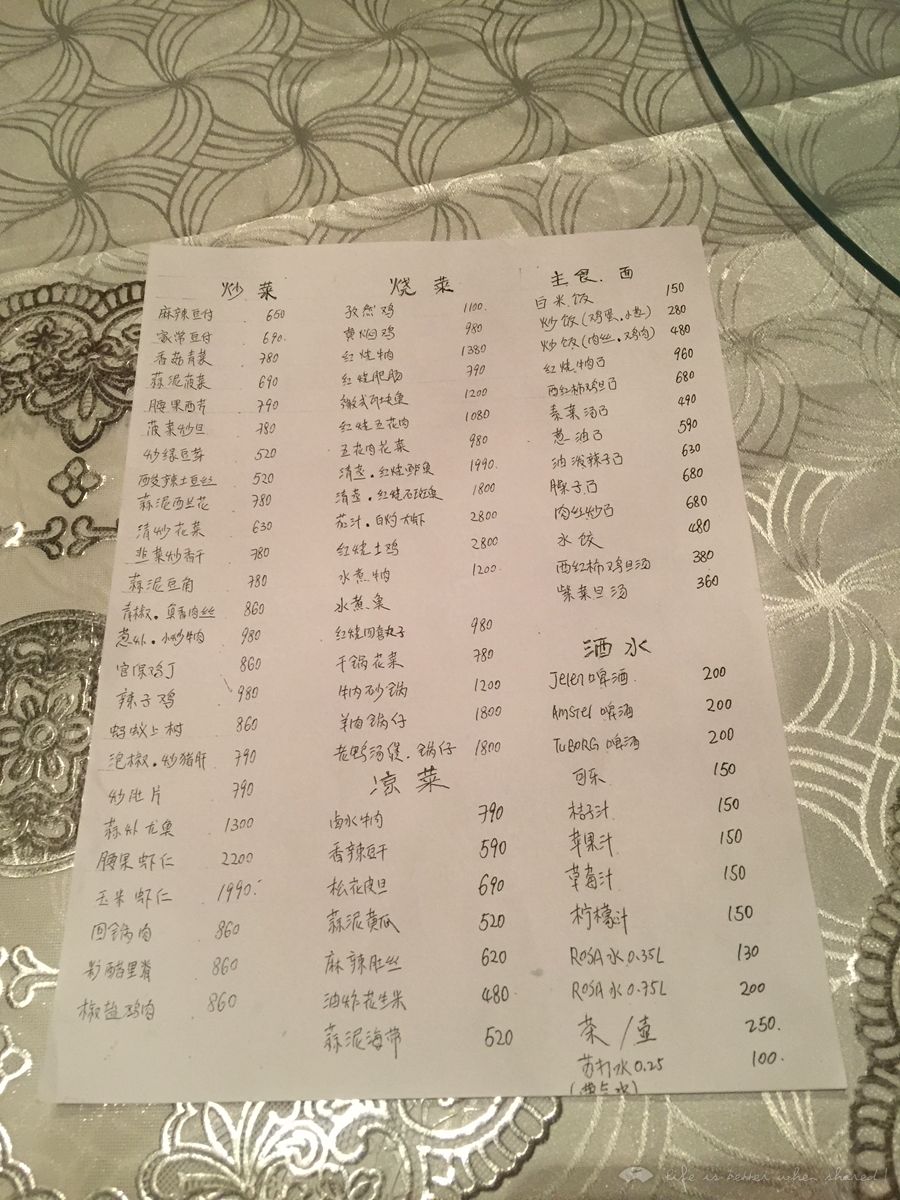 炒菜
麻辣豆付 660
家常豆付 690.
香菇青菜 780
蒜泥菠菜 690
腰果西芹 790
菠菜炒旦 780
炒绿豆芽 520
酸辣土豆丝 520
蒜泥西兰花 780
清炒花菜 630
韭菜炒香干 780
蒜泥豆角 780
青椒.鱼香肉丝 860
葱炒.小炒牛肉 980
宫保鸡丁 860
辣子鸡 980
蚂蚁上树 860
泡椒.炒猪肝 790
炒肚片 790
蒜炒尤鱼 1300
腰果虾仁 2200
玉米虾仁 1990.-
回锅肉 860
糖醋里脊 860
椒盐鸡肉 860
烧菜
孜然鸡 1100.
黄焖鸡 980
红烧牛肉 1380
红烧肥肠 790
块鱼 1200
红烧五花肉 1080
五花肉花菜 980
清蒸.红烧鲈鱼 1990.
清蒸.红烧石斑鱼 1800
茄汁.白灼大虾 2800
红烧土鸡 2800
水煮牛肉 1200.
水煮鱼
红烧四喜丸子 980
干锅花菜 780
牛肉砂锅 1200
羊肉锅仔 1800
老鸭汤煲.锅仔 1800
凉菜
卤水牛肉 790
香辣豆干 590
松花皮旦 690
蒜泥黄瓜 520
麻辣肚丝 620
油炸花生米 480.
蒜泥海带 520
主食.面
白米饭 150
炒饭(鸡蛋.小葱) 280
炒饭(肉丝.鸡肉) 480
红烧牛肉面 960
西红柿鸡旦面 680
素菜汤面 490
葱油面 590
油泼辣子面 630
臊子面 680
肉丝炒面 680
水饺 480
西红柿鸡旦汤 380
紫菜旦汤 360
酒水
Jelen啤酒. 200
Amstel啤酒 200
TUBORG啤酒 200
可乐 150
桔子汁 150
苹果汁 150
草莓汁 150
柠檬汁 150
ROSA水0.35L 130
ROSA水0.75L 200
茶/壶 250.
苏打水0.25 100.
life is better when shared!